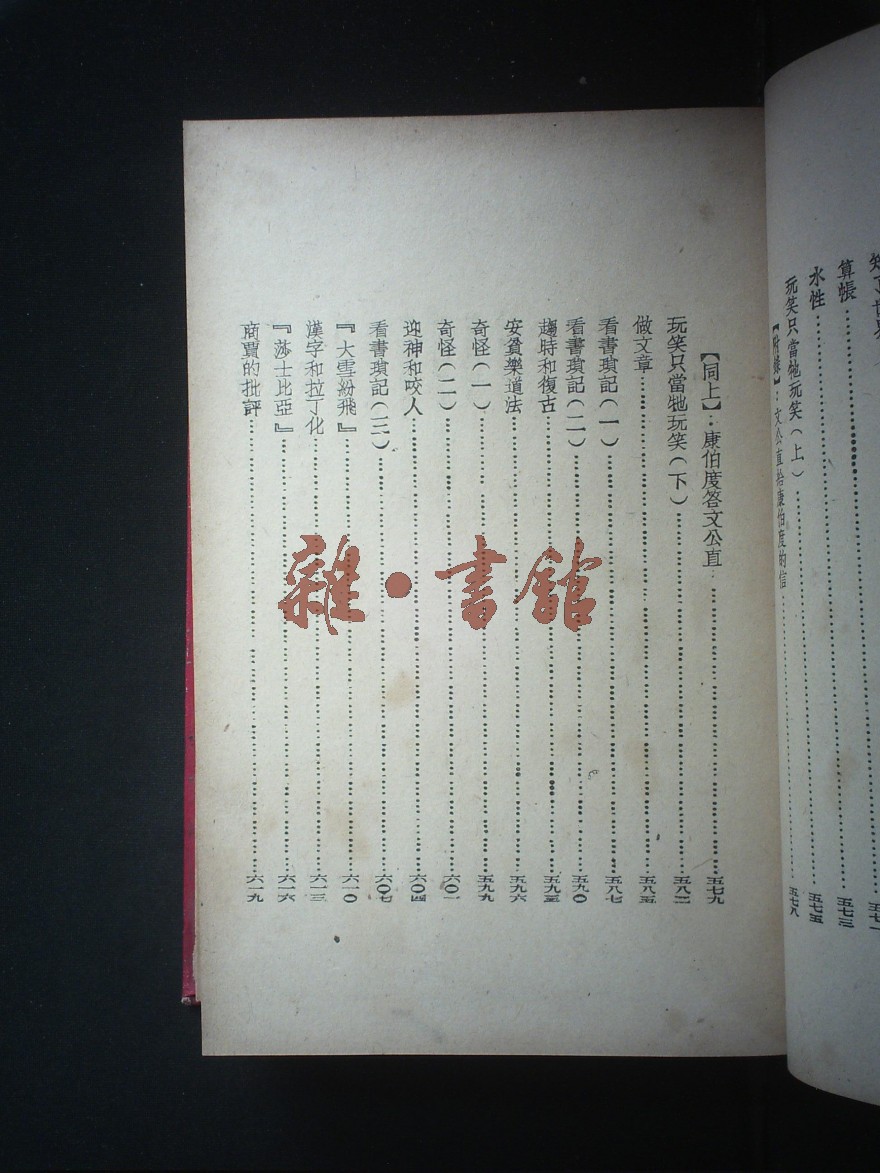 算帳……五七三
水性……五七五
玩笑只當牠玩笑（上）
【附錄】：文公直給康伯度的信……五七八
【同上】：康伯度答文公直……五七九
玩笑只當牠玩笑（下）……五八二
做文章……五八五
看書瑣記（一）……五八七
看書瑣記（二）……五九〇
趨時和復古……五九三
安貧樂道法……五九六
奇怪（一）……五九九
奇怪（二）……六〇一
迎神和咬人……六〇四
看書瑣記（三）……六〇七
『大雪紛飛』……六一〇
漢字和拉丁化……六一三
『莎士比亞』……六一六
商賈的批評……六一九
雜·書館